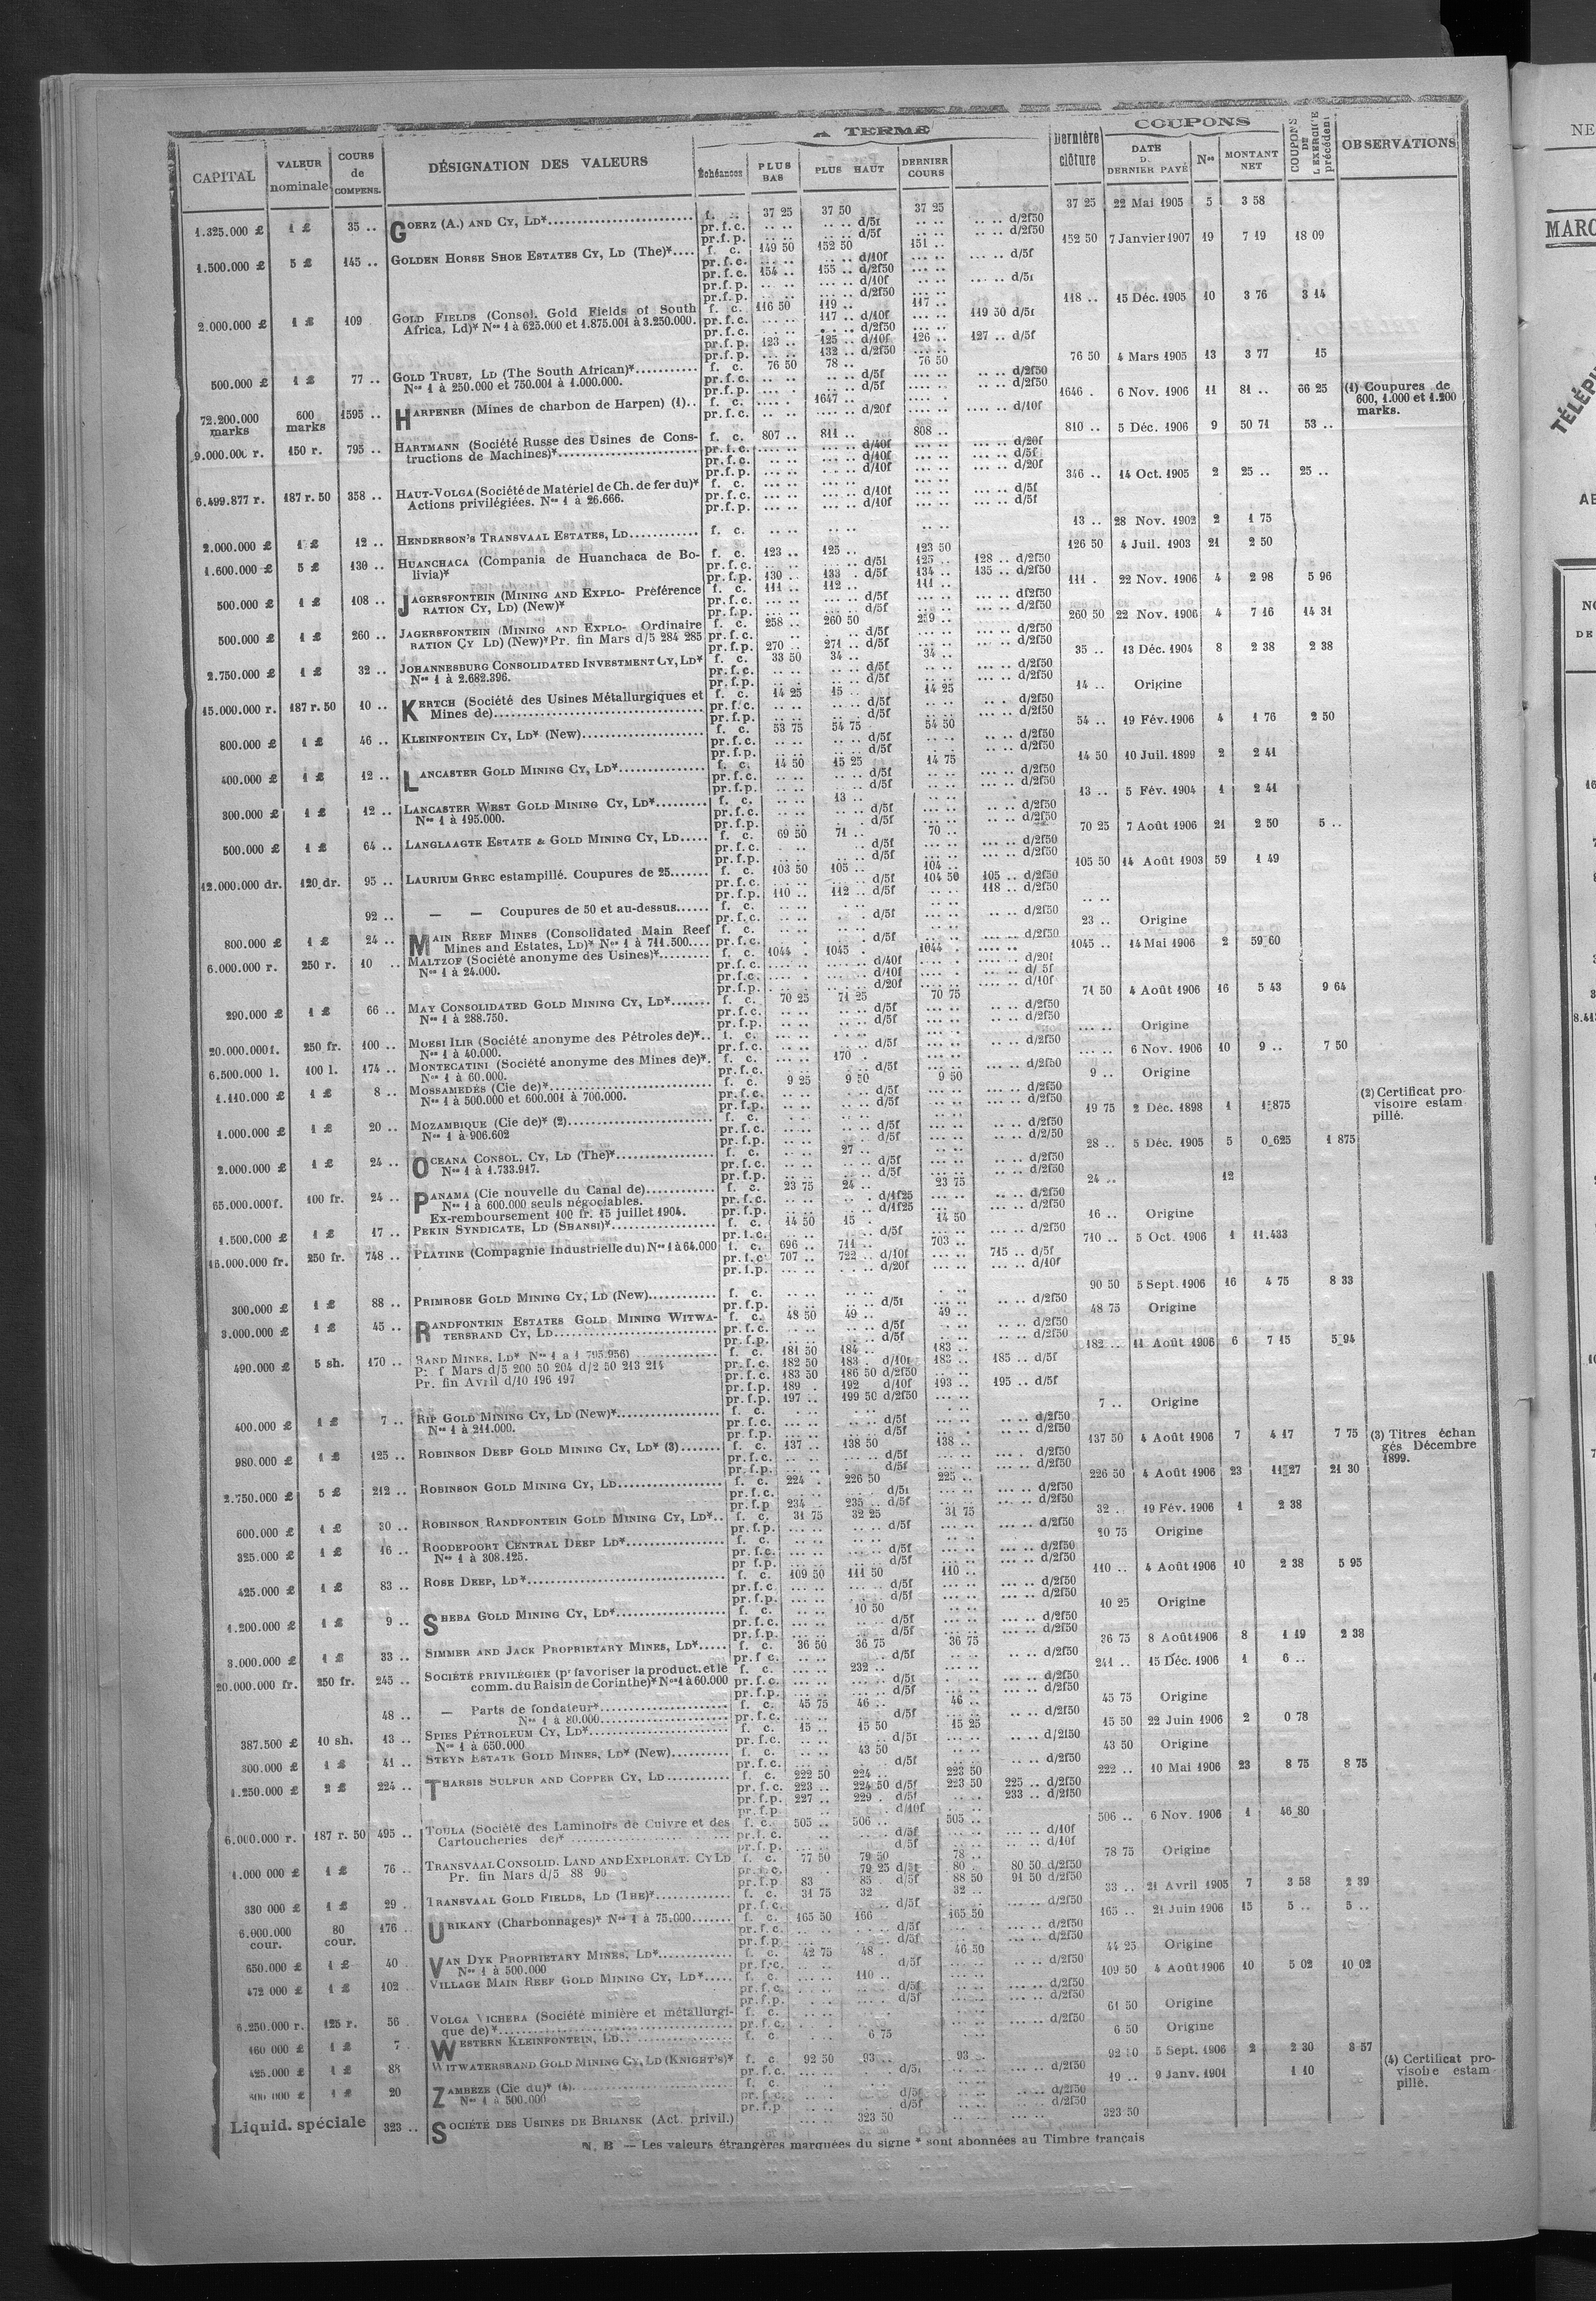 CAPITAL
VALEUR nominale
COURS de COMPENS.
DÉSIGNATION DES VALEURS
A TERME
Échéances
PLUS BAS
PLUS HAUT
DERNIER COURS
Dernière clôture
COUPONS
DATE D. DERNIER PAYÉ
Nos
MONTANT NET
COUPONS DE L'EXERCICE précédent
OBSERVATIONS
1.325.000 £ 1 £ 35 .. GOERZ (A.) AND CY, LD* f. c. 37 25 37 50 37 25 37 25 22 Mai 1905 5 3 58
pr. f. c. .. .. .. .. d/5f .. .. .. .. d/2f50
pr. f. p. .. .. .. .. d/5f .. .. .. .. d/2f50
1.500.000 £ 5 £ 145 .. GOLDEN HORSE SHOE ESTATES CY, LD (The)* f. c. 149 50 152 50 151 .. 152 50 7 Janvier 1907 19 7 19 18 09
pr. f. c. .. .. .. .. d/10f .. .. .. .. d/5f
pr. f. c. 154 .. 155 .. d/2f50
pr. f. p. .. .. .. .. d/10f
pr. f. p. .. .. .. .. d/2f50
2.000.000 £ 1 £ 109 GOLD FIELDS (Consol. Gold Fields of South f. c. 116 50 119 .. 117 .. 118 .. 15 Déc. 1905 10 3 76 3 14
Africa, Ld)* Nos 1 à 625.000 et 1.875.001 à 3.250.000. pr. f. c. .. .. 117 .. d/10f .. .. 119 50 d/5f
pr. f. c. .. .. .. .. d/2f50
pr. f. p. 123 .. 125 .. d/10f 126 .. 127 .. d/5f
pr. f. p. .. .. 132 .. d/2f50
500.000 £ 1 £ 77 .. GOLD TRUST, LD (The South African)* f. c. 76 50 78 .. 76 50 76 50 4 Mars 1905 13 3 77 15
Nos 1 à 250.000 et 750.001 à 1.000.000. pr. f. c. .. .. .. .. d/5f .. .. .. .. d/2f50
pr. f. p. .. .. .. .. d/5f .. .. .. .. d/2f50
72.200.000 marks 600 marks 1595 .. HARPENER (Mines de charbon de Harpen) (1).. f. c. .. .. 1647 .. .. .. 1646 . 6 Nov. 1906 11 81 .. 66 25 (1) Coupures de 600, 1.000 et 1.200 marks.
pr. f. c. .. .. .. .. d/20f .. .. .. .. d/10f
9.000.000 r. 150 r. 795 .. HARTMANN (Société Russe des Usines de Cons- f. c. 807 .. 811 .. 808 .. 810 .. 5 Déc. 1906 9 50 71 53 ..
tructions de Machines)* pr. f. c. .. .. .. .. d/40f .. .. .. .. d/20f
pr. f. c. .. .. .. .. d/10f .. .. .. .. d/5f
pr. f. p. .. .. .. .. d/10f .. .. .. .. d/20f
6.499.877 r. 187 r. 50 358 .. HAUT-VOLGA (Société de Matériel de Ch. de fer du)* f. c. .. .. .. .. .. .. 346 .. 14 Oct. 1905 2 25 .. 25 ..
Actions privilégiées. Nos 1 à 26.666. pr. f. c. .. .. .. .. d/10f .. .. .. .. d/5f
pr. f. p. .. .. .. .. d/10f .. .. .. .. d/5f
2.000.000 £ 1 £ 12 .. HENDERSON'S TRANSVAAL ESTATES, LD f. c. .. .. .. .. .. .. 13 .. 28 Nov. 1902 2 1 75
1.600.000 £ 5 £ 130 .. HUANCHACA (Compania de Huanchaca de Bo- f. c. 123 .. 125 .. 123 50 126 50 4 Juil. 1903 21 2 50
livia)* pr. f. c. .. .. .. .. d/5f 125 .. 128 .. d/2f50
pr. f. p. 130 .. 133 .. d/5f 134 .. 135 .. d/2f50
500.000 £ 1 £ 108 .. JAGERSFONTEIN (MINING AND EXPLO- Préférence f. c. 111 .. 112 .. 111 .. 111 . 22 Nov. 1906 4 2 98 5 96
RATION CY, LD) (New)* pr. f. c. .. .. .. .. d/5f .. .. .. .. d/2f50
pr. f. p. .. .. .. .. d/5f .. .. .. .. d/2f50
500.000 £ 1 £ 260 .. JAGERSFONTEIN (MINING AND EXPLO- Ordinaire f. c. 258 .. 260 50 259 .. 260 50 22 Nov. 1906 4 7 16 14 31
RATION CY LD) (New)* Pr. fin Mars d/5 284 285 pr. f. c. .. .. .. .. d/5f .. .. .. .. d/2f50
pr. f. p. 270 .. 271 .. d/5f .. .. .. .. d/2f50
2.750.000 £ 1 £ 32 .. JOHANNESBURG CONSOLIDATED INVESTMENT CY, LD* f. c. 33 50 34 .. 34 .. 35 .. 13 Déc. 1904 8 2 38 2 38
Nos 1 à 2.682.396. pr. f. c. .. .. .. .. d/5f .. .. .. .. d/2f50
pr. f. p. .. .. .. .. d/5f .. .. .. .. d/2f50
15.000.000 r. 187 r. 50 10 .. KERTCH (Société des Usines Métallurgiques et f. c. 14 25 15 .. 14 25 14 .. Origine
Mines de) pr. f. c. .. .. .. .. d/5f .. .. .. .. d/2f50
pr. f. p. .. .. .. .. d/5f .. .. .. .. d/2f50
800.000 £ 1 £ 46 .. KLEINFONTEIN CY, LD* (New) f. c. 53 75 54 75 54 50 54 .. 19 Fév. 1906 4 1 76 2 50
pr. f. c. .. .. .. .. d/5f .. .. .. .. d/2f50
pr. f. p. .. .. .. .. d/5f .. .. .. .. d/2f50
400.000 £ 1 £ 12 .. LANCASTER GOLD MINING CY, LD* f. c. 14 50 15 25 14 75 14 50 10 Juil. 1899 2 2 41
pr. f. c. .. .. .. .. d/5f .. .. .. .. d/2f50
pr. f. p. .. .. .. .. d/5f .. .. .. .. d/2f50
300.000 £ 1 £ 12 .. LANCASTER WEST GOLD MINING CY, LD* f. c. .. .. 13 .. .. .. 13 .. 5 Fév. 1904 1 2 41
Nos 1 à 195.000. pr. f. c. .. .. .. .. d/5f .. .. .. .. d/2f50
pr. f. p. .. .. .. .. d/5f .. .. .. .. d/2f50
500.000 £ 1 £ 64 .. LANGLAAGTE ESTATE & GOLD MINING CY, LD f. c. 69 50 71 .. 70 .. 70 25 7 Août 1906 21 2 50 5 ..
pr. f. c. .. .. .. .. d/5f .. .. .. .. d/2f50
pr. f. p. .. .. .. .. d/5f .. .. .. .. d/2f50
12.000.000 dr. 120 dr. 95 .. LAURIUM GREC estampillé. Coupures de 25 f. c. 103 50 105 .. 104 .. 105 50 14 Août 1903 59 1 49
pr. f. c. .. .. .. .. d/5f 104 50 105 .. d/2f50
pr. f. p. 110 .. 112 .. d/5f .. .. 118 .. d/2f50
92 .. — — Coupures de 50 et au-dessus f. c. .. .. .. .. .. ..
pr. f. c. .. .. .. .. d/5f .. .. .. .. d/2f50
800.000 £ 1 £ 24 .. MAIN REEF MINES (Consolidated Main Reef f. c. .. .. .. .. .. .. 23 .. Origine
Mines and Estates, LD)* Nos 1 à 711.500 pr. f. c. .. .. .. .. d/5f .. .. .. .. d/2f50
6.000.000 r. 250 r. 10 .. MALTZOF (Société anonyme des Usines)* f. c. 1044 . 1045 . 1044 . 1045 .. 14 Mai 1906 2 59 60
Nos 1 à 24.000. pr. f. c. .. .. .. .. d/40f .. .. .. .. d/20f
pr. f. c. .. .. .. .. d/10f .. .. .. .. d/ 5f
pr. f. p. .. .. .. .. d/20f .. .. .. .. d/10f
290.000 £ 1 £ 66 .. MAY CONSOLIDATED GOLD MINING CY, LD* f. c. 70 25 71 25 70 75 71 50 4 Août 1906 16 5 43 9 64
Nos 1 à 288.750. pr. f. c. .. .. .. .. d/5f .. .. .. .. d/2f50
pr. f. p. .. .. .. .. d/5f .. .. .. .. d/2f50
20.000.000 f. 250 fr. 100 .. MOESI ILIR (Société anonyme des Pétroles de)* f. c. .. .. .. .. .. .. Origine
Nos 1 à 40.000. pr. f. c. .. .. .. .. d/5f .. .. .. .. d/2f50
6.500.000 l. 100 l. 174 .. MONTECATINI (Société anonyme des Mines de)* f. c. .. .. 170 . .. .. 6 Nov. 1906 10 9 .. 7 50
Nos 1 à 60.000. pr. f. c. .. .. .. .. d/5f .. .. .. .. d/2f50
1.110.000 £ 1 £ 8 .. MOSSAMEDÈS (Cie de)* f. c. 9 25 9 50 9 50 9 .. Origine
Nos 1 à 500.000 et 600.001 à 700.000. pr. f. c. .. .. .. .. d/5f .. .. .. .. d/2f50
pr. f. p. .. .. .. .. d/5f .. .. .. .. d/2f50
1.000.000 £ 1 £ 20 .. MOZAMBIQUE (Cie de)* (2) f. c. .. .. .. .. .. .. 19 75 2 Déc. 1898 1 1 875 (2) Certificat provisoire estampillé.
Nos 1 à 906.602 pr. f. c. .. .. .. .. d/5f .. .. .. .. d/2f50
pr. f. p. .. .. .. .. d/5f .. .. .. .. d/2f50
2.000.000 £ 1 £ 24 .. OCEANA CONSOL. CY, LD (The)* f. c. .. .. 27 .. .. .. 28 .. 5 Déc. 1905 5 0 625 1 875
Nos 1 à 1.733.917. pr. f. c. .. .. .. .. d/5f .. .. .. .. d/2f50
pr. f. p. .. .. .. .. d/5f .. .. .. .. d/2f50
65.000.000 f. 100 fr. 24 .. PANAMA (Cie nouvelle du Canal de) f. c. 23 75 24 .. 23 75 24 .. 12
Nos 1 à 600.000 seuls négociables. pr. f. c. .. .. .. .. d/1f25 .. .. .. .. d/2f50
Ex-remboursement 100 fr. 15 juillet 1904. pr. f. p. .. .. .. .. d/1f25 .. .. .. .. d/2f50
1.500.000 £ 1 £ 17 .. PEKIN SYNDICATE, LD (SHANSI)* f. c. 14 50 15 . 14 50 16 .. Origine
pr. f. c. .. .. .. .. d/5f .. .. .. .. d/2f50
15.000.000 fr. 250 fr. 748 .. PLATINE (Compagnie Industrielle du) Nos 1 à 64.000 f. c. 696 .. 711 .. 703 .. 710 .. 5 Oct. 1906 1 11.433
pr. f. c. 707 .. 722 .. d/10f .. .. 715 .. d/5f
pr. f. p. .. .. .. .. d/20f .. .. .. .. d/10f
300.000 £ 1 £ 88 .. PRIMROSE GOLD MINING CY, LD (New) f. c. .. .. .. .. .. .. 90 50 5 Sept. 1906 16 4 75 8 33
pr. f. p. .. .. .. .. d/5f .. .. .. .. d/2f50
3.000.000 £ 1 £ 45 .. RANDFONTEIN ESTATES GOLD MINING WITWA- f. c. 48 50 49 .. 49 .. 48 75 Origine
TERSRAND CY, LD pr. f. c. .. .. .. .. d/5f .. .. .. .. d/2f50
pr. f. p. .. .. .. .. d/5f .. .. .. .. d/2f50
490.000 £ 5 sh. 170 .. RAND MINES, LD* Nos 1 à 1.795.956) f. c. 181 50 184 .. 183 .. 182 .. 11 Août 1906 6 7 15 5 94
Pr. f Mars d/5 200 50 204 d/2 50 213 214 pr. f. c. 182 50 183 . d/10f 183 .. 185 .. d/5f
Pr. fin Avril d/10 196 197 pr. f. c. 183 50 186 50 d/2f50
pr. f. p. 189 . 192 d/10f 193 .. 195 .. d/5f
pr. f. p. 197 .. 199 50 d/2f50
400.000 £ 1 £ 7 .. RIP GOLD MINING CY, LD (New)* f. c. .. .. .. .. .. .. 7 .. Origine
Nos 1 à 211.000. pr. f. c. .. .. .. .. d/5f .. .. .. .. d/2f50
pr. f. p. .. .. .. .. d/5f .. .. .. .. d/2f50
980.000 £ 1 £ 125 .. ROBINSON DEEP GOLD MINING CY, LD* (3) f. c. 137 .. 138 50 138 .. 137 50 4 Août 1906 7 4 17 7 75 (3) Titres échangés Décembre 1899.
pr. f. c. .. .. .. .. d/5f .. .. .. .. d/2f50
pr. f. p. .. .. .. .. d/5f .. .. .. .. d/2f50
2.750.000 £ 5 £ 212 .. ROBINSON GOLD MINING CY, LD f. c. 224 . 226 50 225 .. 226 50 4 Août 1906 23 11 27 21 30
pr. f. c. .. .. .. .. d/5f .. .. .. .. d/2f50
pr. f. p. 234 .. 235 .. d/5f .. .. .. .. d/2f50
600.000 £ 1 £ 30 .. ROBINSON RANDFONTEIN GOLD MINING CY, LD* f. c. 31 75 32 25 31 75 32 .. 19 Fév. 1906 1 2 38
pr. f. p. .. .. .. .. d/5f .. .. .. .. d/2f50
325.000 £ 1 £ 16 .. ROODEPOORT CENTRAL DEEP LD* f. c. .. .. .. .. .. .. 20 75 Origine
Nos 1 à 308.125. pr. f. c. .. .. .. .. d/5f .. .. .. .. d/2f50
pr. f. p. .. .. .. .. d/5f .. .. .. .. d/2f50
425.000 £ 1 £ 83 .. ROSE DEEP, LD* f. c. 109 50 111 50 110 .. 110 .. 4 Août 1906 10 2 38 5 95
pr. f. c. .. .. .. .. d/5f .. .. .. .. d/2f50
pr. f. p. .. .. .. .. d/5f .. .. .. .. d/2f50
1.200.000 £ 1 £ 9 .. SHEBA GOLD MINING CY, LD* f. c. .. .. 10 50 .. .. 10 25 Origine
pr. f. c. .. .. .. .. d/5f .. .. .. .. d/2f50
pr. f. p. .. .. .. .. d/5f .. .. .. .. d/2f50
3.000.000 £ 1 £ 33 .. SIMMER AND JACK PROPRIETARY MINES, LD* f. c. 36 50 36 75 36 75 36 75 8 Août 1906 8 1 19 2 38
pr. f. c. .. .. .. .. d/5f .. .. .. .. d/2f50
20.000.000 fr. 250 fr. 245 .. SOCIÉTÉ PRIVILÉGIÉE (pr favoriser la product. et le f. c. .. .. 232 .. .. .. 241 .. 15 Déc. 1906 1 6 ..
comm. du Raisin de Corinthe)* Nos 1 à 60.000 pr. f. c. .. .. .. .. d/5f .. .. .. .. d/2f50
pr. f. p. .. .. .. .. d/5f .. .. .. .. d/2f50
48 .. — Parts de fondateur* f. c. 45 75 46 .. 46 .. 45 75 Origine
Nos 1 à 80.000 pr. f. c. .. .. .. .. d/5f .. .. .. .. d/2f50
387.500 £ 10 sh. 13 .. SPIES PÉTROLEUM CY, LD* f. c. 15 .. 15 50 15 25 15 50 22 Juin 1906 2 0 78
Nos 1 à 650.000 pr. f. c. .. .. .. .. d/5f .. .. .. .. d/2f50
300.000 £ 1 £ 41 .. STEYN ESTATE GOLD MINES, LD* (New) f. c. .. .. 43 50 .. .. 43 50 Origine
pr. f. c. .. .. .. .. d/5f .. .. .. .. d/2f50
1.250.000 £ 2 £ 224 .. THARSIS SULFUR AND COPPER CY, LD f. c. 222 50 224 .. 223 50 222 .. 10 Mai 1906 23 8 75 8 75
pr. f. c. 223 .. 224 50 d/5f 223 50 225 .. d/2f50
pr. f. p. 227 .. 229 . d/5f .. .. 233 .. d/2f50
pr. f. p. .. .. .. .. d/10f
6.000.000 r. 187 r. 50 495 .. TOULA (Société des Laminoirs de Cuivre et des f. c. 505 .. 506 .. 505 .. 506 .. 6 Nov. 1906 1 46 80
Cartoucheries de)* pr. f. c. .. .. .. .. d/5f .. .. .. .. d/10f
pr. f. p. .. .. .. .. d/5f .. .. .. .. d/10f
1.000 000 £ 1 £ 76 .. TRANSVAAL CONSOLID. LAND AND EXPLORAT. CY LD f. c. 77 50 79 50 78 .. 78 75 Origine
Pr. fin Mars d/5 88 90 pr. f. c. . 79 25 d/5f 80 . 80 50 d/2f50
pr. f. p. 83 85 . d/5f 88 50 91 50 d/2f50
330 000 £ 1 £ 29 . TRANSVAAL GOLD FIELDS, LD (THE)* f. c. 31 75 32 32 .. 33 .. 21 Avril 1905 7 3 58 2 39
pr. f. c. .. .. .. .. d/5f .. .. .. .. d/2f50
6.000.000 cour. 80 cour. 176 .. URIKANY (Charbonnages)* Nos 1 à 75.000 f. c. 165 50 166 165 50 165 .. 21 Juin 1906 15 5 .. 5 ..
pr. f. c. .. .. .. .. d/5f .. .. .. .. d/2f50
pr. f. p. .. .. .. .. d/5f .. .. .. .. d/2f50
650.000 £ 1 £ 40 . VAN DYK PROPRIETARY MINES, LD* f. c. 42 75 48 . 46 50 44 25 Origine
Nos 1 à 500.000 pr. f. c. .. .. .. .. d/5f .. .. .. .. d/2f50
472 000 £ 1 £ 102 VILLAGE MAIN REEF GOLD MINING CY, LD* f. c. .. .. 110 .. .. .. 109 50 4 Août 1906 10 5 02 10 02
pr. f. c. .. .. .. .. d/5f .. .. .. .. d/2f50
pr. f. p. .. .. .. .. d/5f .. .. .. .. d/2f50
6.250.000 r. 125 r. 56 VOLGA VICHERA (Société minière et métallurgi- f. c. .. .. .. .. .. .. 61 50 Origine
que de)* pr. f. c. .. .. .. .. .. .. .. .. d/2f50
160 000 £ 1 £ 7 . WESTERN KLEINFONTEIN, LD f. c. 6 75 6 50 Origine
425.000 £ 1 £ 88 WITWATERSRAND GOLD MINING CY, LD (KNIGHT'S)* f. c. 92 50 93 .. 93 .. 5 Sept. 1906 2 2 30 3 57
pr. f. c. .. .. .. .. d/5f .. .. .. .. d/2f50
1 £ 20 ZAMBÈZE (Cie du)* (4) f. c. .. .. .. .. 19 .. 9 Janv. 1901 1 10 (4) Certificat provisoire estampillé.
Nos 1 à 500.000 pr. f. c. .. .. .. .. d/5f .. .. .. .. d/2f50
pr. f. p. .. .. .. .. d/5f .. .. .. .. d/2f50
Liquid. spéciale 323 .. SOCIÉTÉ DES USINES DE BRIANSK (Act. privil.) .. .. 323 50 .. .. 323 50
N. B — Les valeurs étrangères marquées du signe * sont abonnées au Timbre français
NE
MARC
TÉLÉP